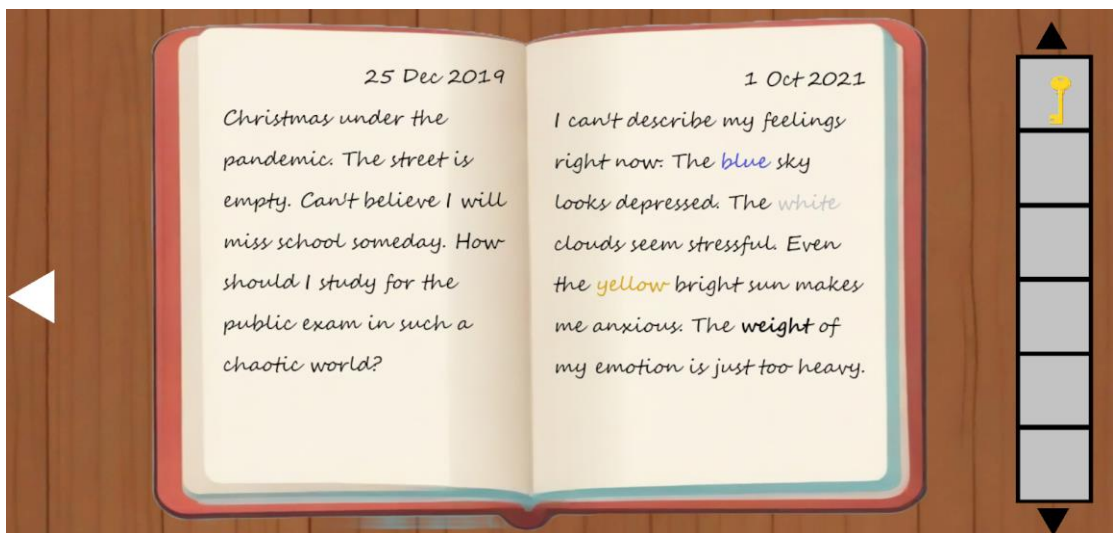 25 Dec 2019
Christmas under the
pandemic. The street is
empty. Can't believe I will
miss school someday. How
should I study for the
public exam in such a
chaotic world?
1 Oct 2021
I can't describe my feelings
right now. The blue sky
looks depressed. The white
clouds seem stressful. Even
the yellow bright sun makes
me anxious. The weight of
my emotion is just too heavy.